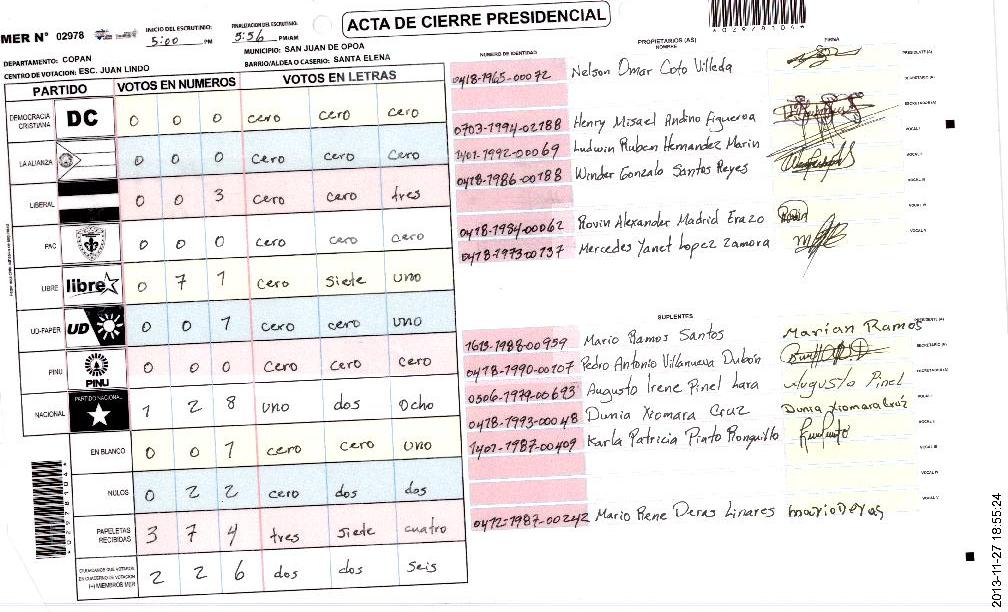 ACTA DE CIERRE PRESIDENCIAL
MER N° 02978
INICIO DEL ESCRUTINIO: 5:00 PM
FINALIZACION DEL ESCRUTINIO: 5:56 PM/AM
DEPARTAMENTO: COPAN
MUNICIPIO: SAN JUAN DE OPOA
CENTRO DE VOTACION: ESC. JUAN LINDO
BARRIO/ALDEA O CASERIO: SANTA ELENA
PARTIDO VOTOS EN NUMEROS VOTOS EN LETRAS
DEMOCRACIA CRISTIANA DC 0 0 0 cero cero cero
LA ALIANZA 0 0 0 cero cero cero
LIBERAL 0 0 3 cero cero tres
PAC 0 0 0 cero cero cero
LIBRE libre 0 7 1 cero siete uno
UD-FAPER UD 0 0 1 cero cero uno
PINU PINU 0 0 0 cero cero cero
NACIONAL PARTIDO NACIONAL 1 2 8 uno dos ocho
EN BLANCO 0 0 1 cero cero uno
NULOS 0 2 2 cero dos dos
PAPELETAS RECIBIDAS 3 7 4 tres siete cuatro
CIUDADANOS QUE VOTARON EN CUADERNO DE VOTACION (+) MIEMBROS MER 2 2 6 dos dos seis
NUMERO DE IDENTIDAD PROPIETARIOS (AS) NOMBRE FIRMA
0418-1965-00072 Nelson Omar Coto Villeda PRESIDENTE (A)
SECRETARIO (A)
0703-1994-02188 Henry Misael Andino Figueroa ESCRUTADOR (A)
1401-1992-00069 Ludwin Ruben Hernandez Marin VOCAL I
0418-1986-00188 Winder Gonzalo Santos Reyes VOCAL II
VOCAL III
0418-1984-00062 Rovin Alexander Madrid Erazo Rovin VOCAL IV
0418-1973-00137 Mercedes Yanet Lopez Zamora VOCAL V
SUPLENTES
1613-1988-00959 Mario Ramos Santos Marian Ramos PRESIDENTE (A)
0418-1990-00107 Pedro Antonio Villanueva Dubón SECRETARIO (A)
0506-1979-00693 Augusto Irene Pinel Lara Augusto Pinel ESCRUTADOR (A)
0418-1993-00048 Dunia Xiomara Cruz Dunia Xiomara Cruz VOCAL I
1401-1987-00409 Karla Patricia Pinto Ronquillo VOCAL II
VOCAL III
VOCAL IV
0412-1987-00242 Mario Rene Deras Linares mario Deras VOCAL V
2013-11-27 18:55:24